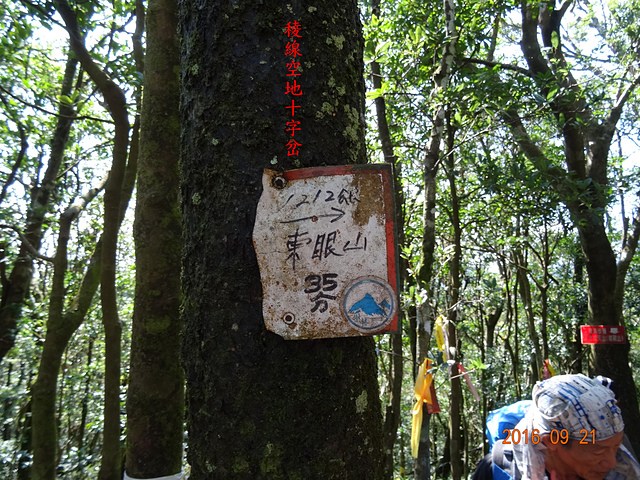 稜線空地十字岔
1212公尺
東眼山
35
分
2016 09 21